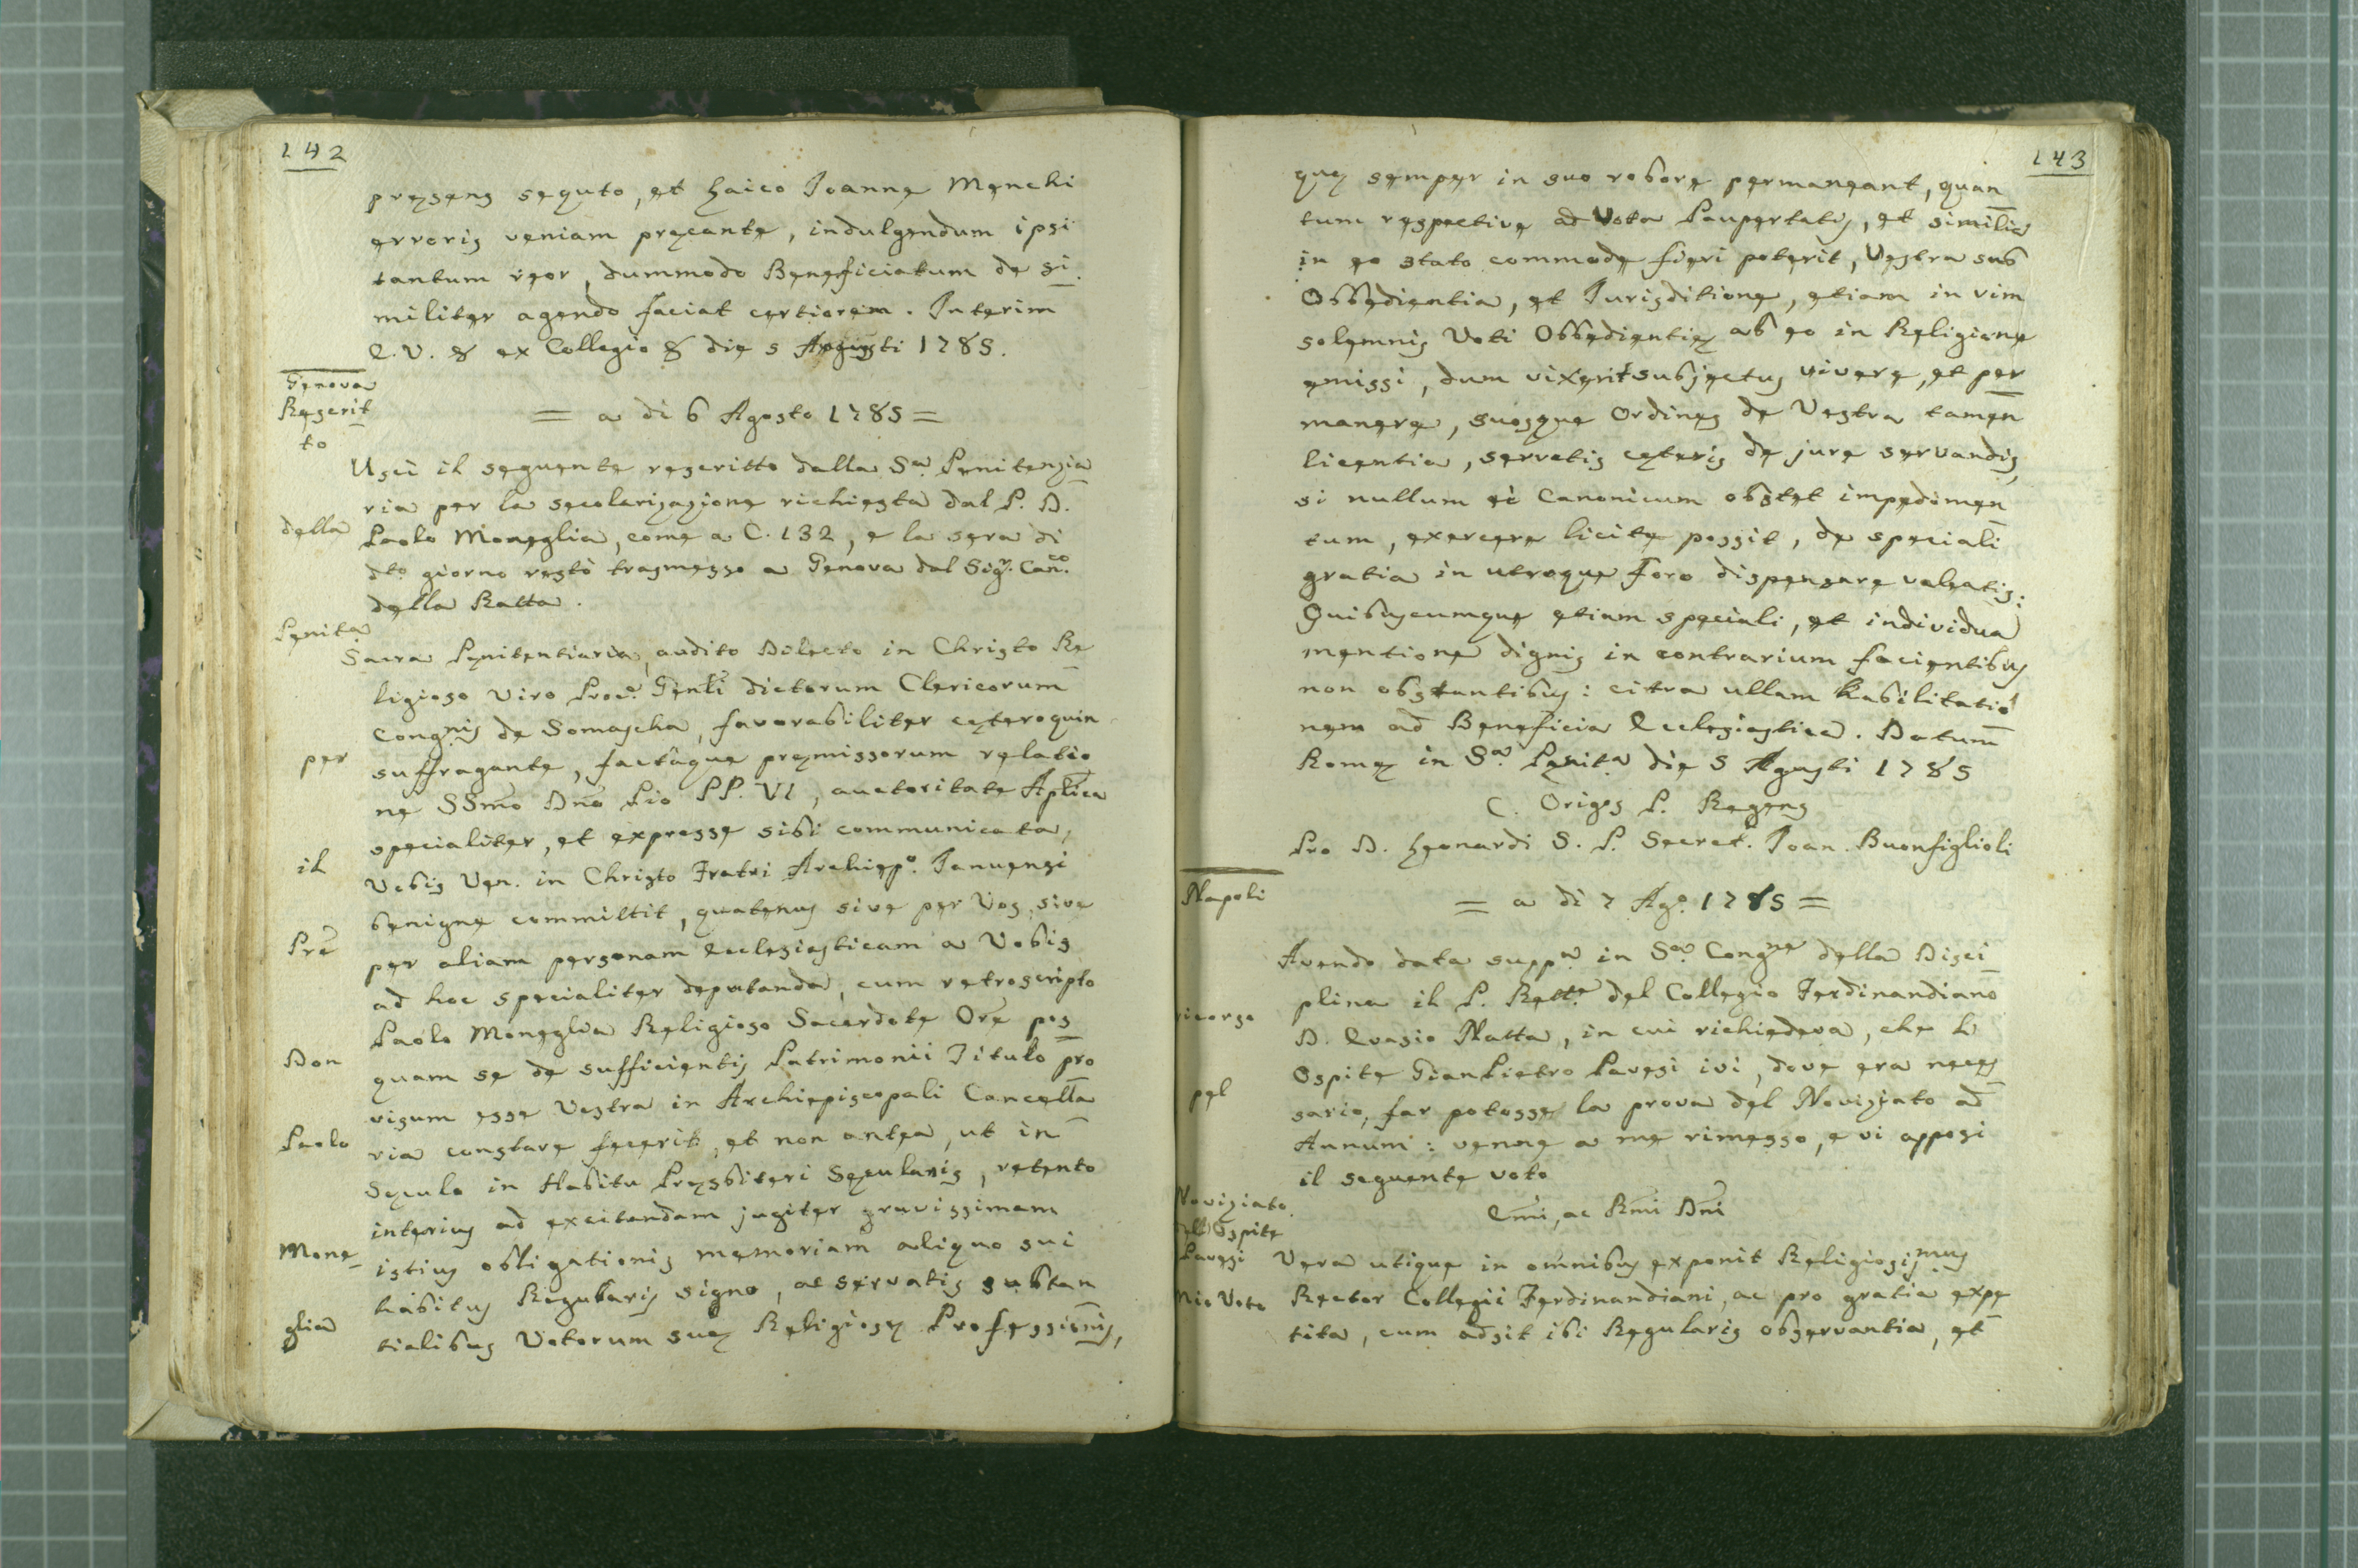 142
pręsens sequto, et Laico Joanne Menchi
erroris veniam pręcante, indulgendum ipsi
tantum reor, dummodo Beneficiatum de si
militer agendo faciat certiorem. Interim
E.V. & ex Collegio & die 5 Agusti 1785.
Genova
Rescrit
to
= a di 6 Agosto 1785 =
Uscì il seguente rescritto dalla Sa. Penitenzia
ria per la secolarizazione richiesta dal P. D.
della
Paolo Moneglia, come a C. 132, e la sera di
dto. giorno restò trasmesso a Genova dal Sigr. Canco.
della Ratta.
Penita.
Sacra Penitentiaria, audito Dilecto in Christo Re
ligioso Viro Procr. Genli dictorum Clericorum
Congnis de Somascha, favorabiliter cęteroquin
per
suffragante, factâque pręmissorum relatio
ne SSmo Dno Pio PP. VI, auctoritate Aplica
specialiter, et expresse sibi communicata,
il
Vobis Ven. in Christo Fratri Archiepo. Januensi
benigne committit, quatenus sive per Vos, sive
Pre
per aliam personam Ecclesiasticam a Vobis
ad hoc specialiter deputanda, cum retroscripto
Paolo Moneglia Religioso Sacerdote Ore pos
Don
quam se de sufficientis Patrimonii Titulo pro
visum esse Vestra in Archiepiscopali Cancella
Paolo
ria constare fecerit, et non antea, ut in
Sęculo in Habitu Pręsbiteri Sęcularis, retento
interius ad excitandam jugiter gravissimam
Mone
istius obligationis memoriam aliquo sui
habitus Regularis signo, ac servatis substan
glia
tialibus Votorum suę Religiosę Professionis,
143
quę semper in suo robore permaneant, quan
tum respective ad Vota Paupertatis, et similia
in eo stato commode fieri poterit, Vestra sub
Obbedientia, et Jurisditione, etiam in vim
solemnis Voti Obbedientię ab eo in Religione
emissi, dum vixerit subjectus vivere, et per
manere, suosque Ordines de Vestra tamen
licentia, servatis cęteris de jure servandis,
si nullum ei Canonicum obstet impedimen
tum, exercere licite possit, de speciali
gratia in utroque Foro dispensare valeatis:
Quibuscumque etiam speciali, et individua
mentione dignis in contrarium facientibus
non obstantibus: citra ullam habilitatio
nem ad Beneficia Ecclesiastica. Datum
Romę in Sa. Penita. die 5 Agusti 1785
C. Origos P. Regens
Pro D. Leonardi S. P. Secret. Joan. Buonfiglioli
Napoli
= a di 7 Ago. 1785 =
Avendo data suppa. in Sa. Congne della Disci
plina il P. Rettre. del Collegio Ferdinandiano
ricorso
D. Evasio Natta, in cui richiedeva, che l'
Ospite GianPietro Pavesi ivi, dove era neces
pel
sario, far potesse la prova del Noviziato ad
Annum: venne a me rimesso, e vi apposi
il seguente voto
Noviziato
dell'Ospite
Emi, ac Rmi Dni
Pavesi
Vera utique in omnibus exponit Religiosismus
Mio Voto
Rector Collegii Ferdinandiani, ac pro gratia expe
tita, cum adsit ibi Regularis observantia, et